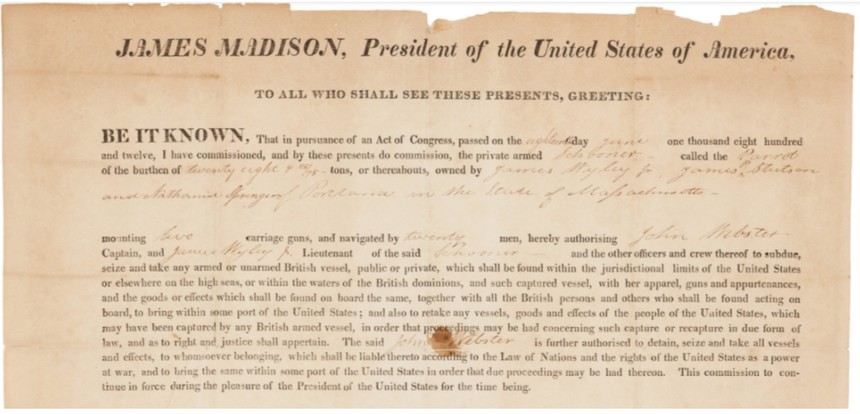 JAMES MADISON, President of the United States of America,
TO ALL WHO SHALL SEE THESE PRESENTS, GREETING:
BE IT KNOWN, That in pursuance of an Act of Congress, passed on the eighteenth day June one thousand eight hundred
and twelve, I have commissioned, and by these presents do commission, the private armed Schooner called the Parrot
of the burthen of twenty eight tons, or thereabouts, owned by James Wyley Jr. James Stetson
and Nathaniel of Portland in the State of Massachusetts
mounting two carriage guns, and navigated by twenty men, hereby authorising John Webster
Captain, and James Wyley Jr. Lieutenant of the said Schooner and the other officers and crew thereof to subdue,
seize and take any armed or unarmed British vessel, public or private, which shall be found within the jurisdictional limits of the United States
or elsewhere on the high seas, or within the waters of the British dominions, and such captured vessel, with her apparel, guns and appurtenances,
and the goods or effects which shall be found on board the same, together with all the British persons and others who shall be found acting on
board, to bring within some port of the United States; and also to retake any vessels, goods and effects of the people of the United States, which
may have been captured by any British armed vessel, in order that proceedings may be had concerning such capture or recapture in due form of
law, and as to right and justice shall appertain. The said John Webster is further authorised to detain, seize and take all vessels
and effects, to whomsoever belonging, which shall be liable thereto according to the Law of Nations and the rights of the United States as a power
at war, and to bring the same within some port of the United States in order that due proceedings may be had thereon. This commission to con-
tinue in force during the pleasure of the President of the United States for the time being.